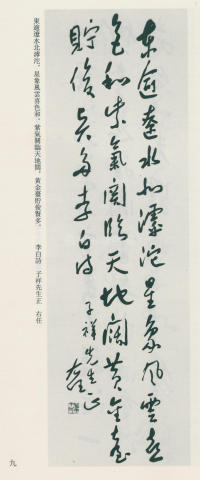 東逾遼水北滹沱星象風雲喜
色和紫氣關臨天地闊黃金臺
貯俊賢多李白詩
子祥先生正
右任
東逾遼水北滹沱，星象風雲喜色和，紫氣關臨天地闊，黃金臺貯俊賢多。　李白詩　子祥先生正　右任
九